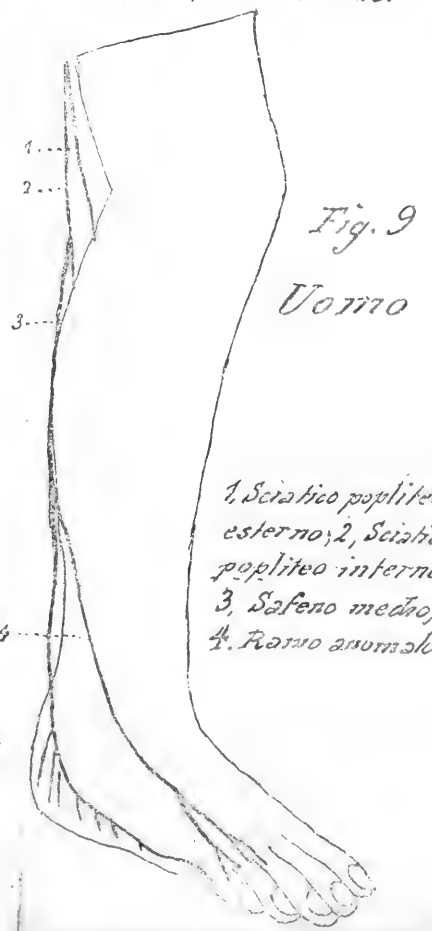 1....
2....
3....
4....
Fig. 9
Uomo
1, Sciatico popliteo
esterno; 2, Sciatico
popliteo interno
3, Safeno medio,
4. Ramo anomalo